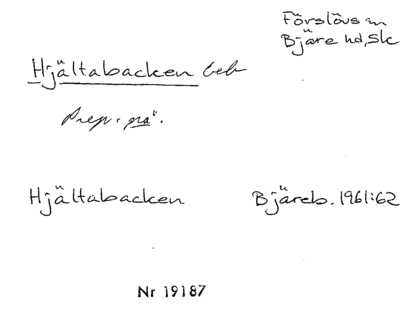 Förslövs sn
Bjäre hd, Sk
Hjältabacken beb
Prep. på.
Hjältabacken Bjäreb. 1961:62
Nr 19187